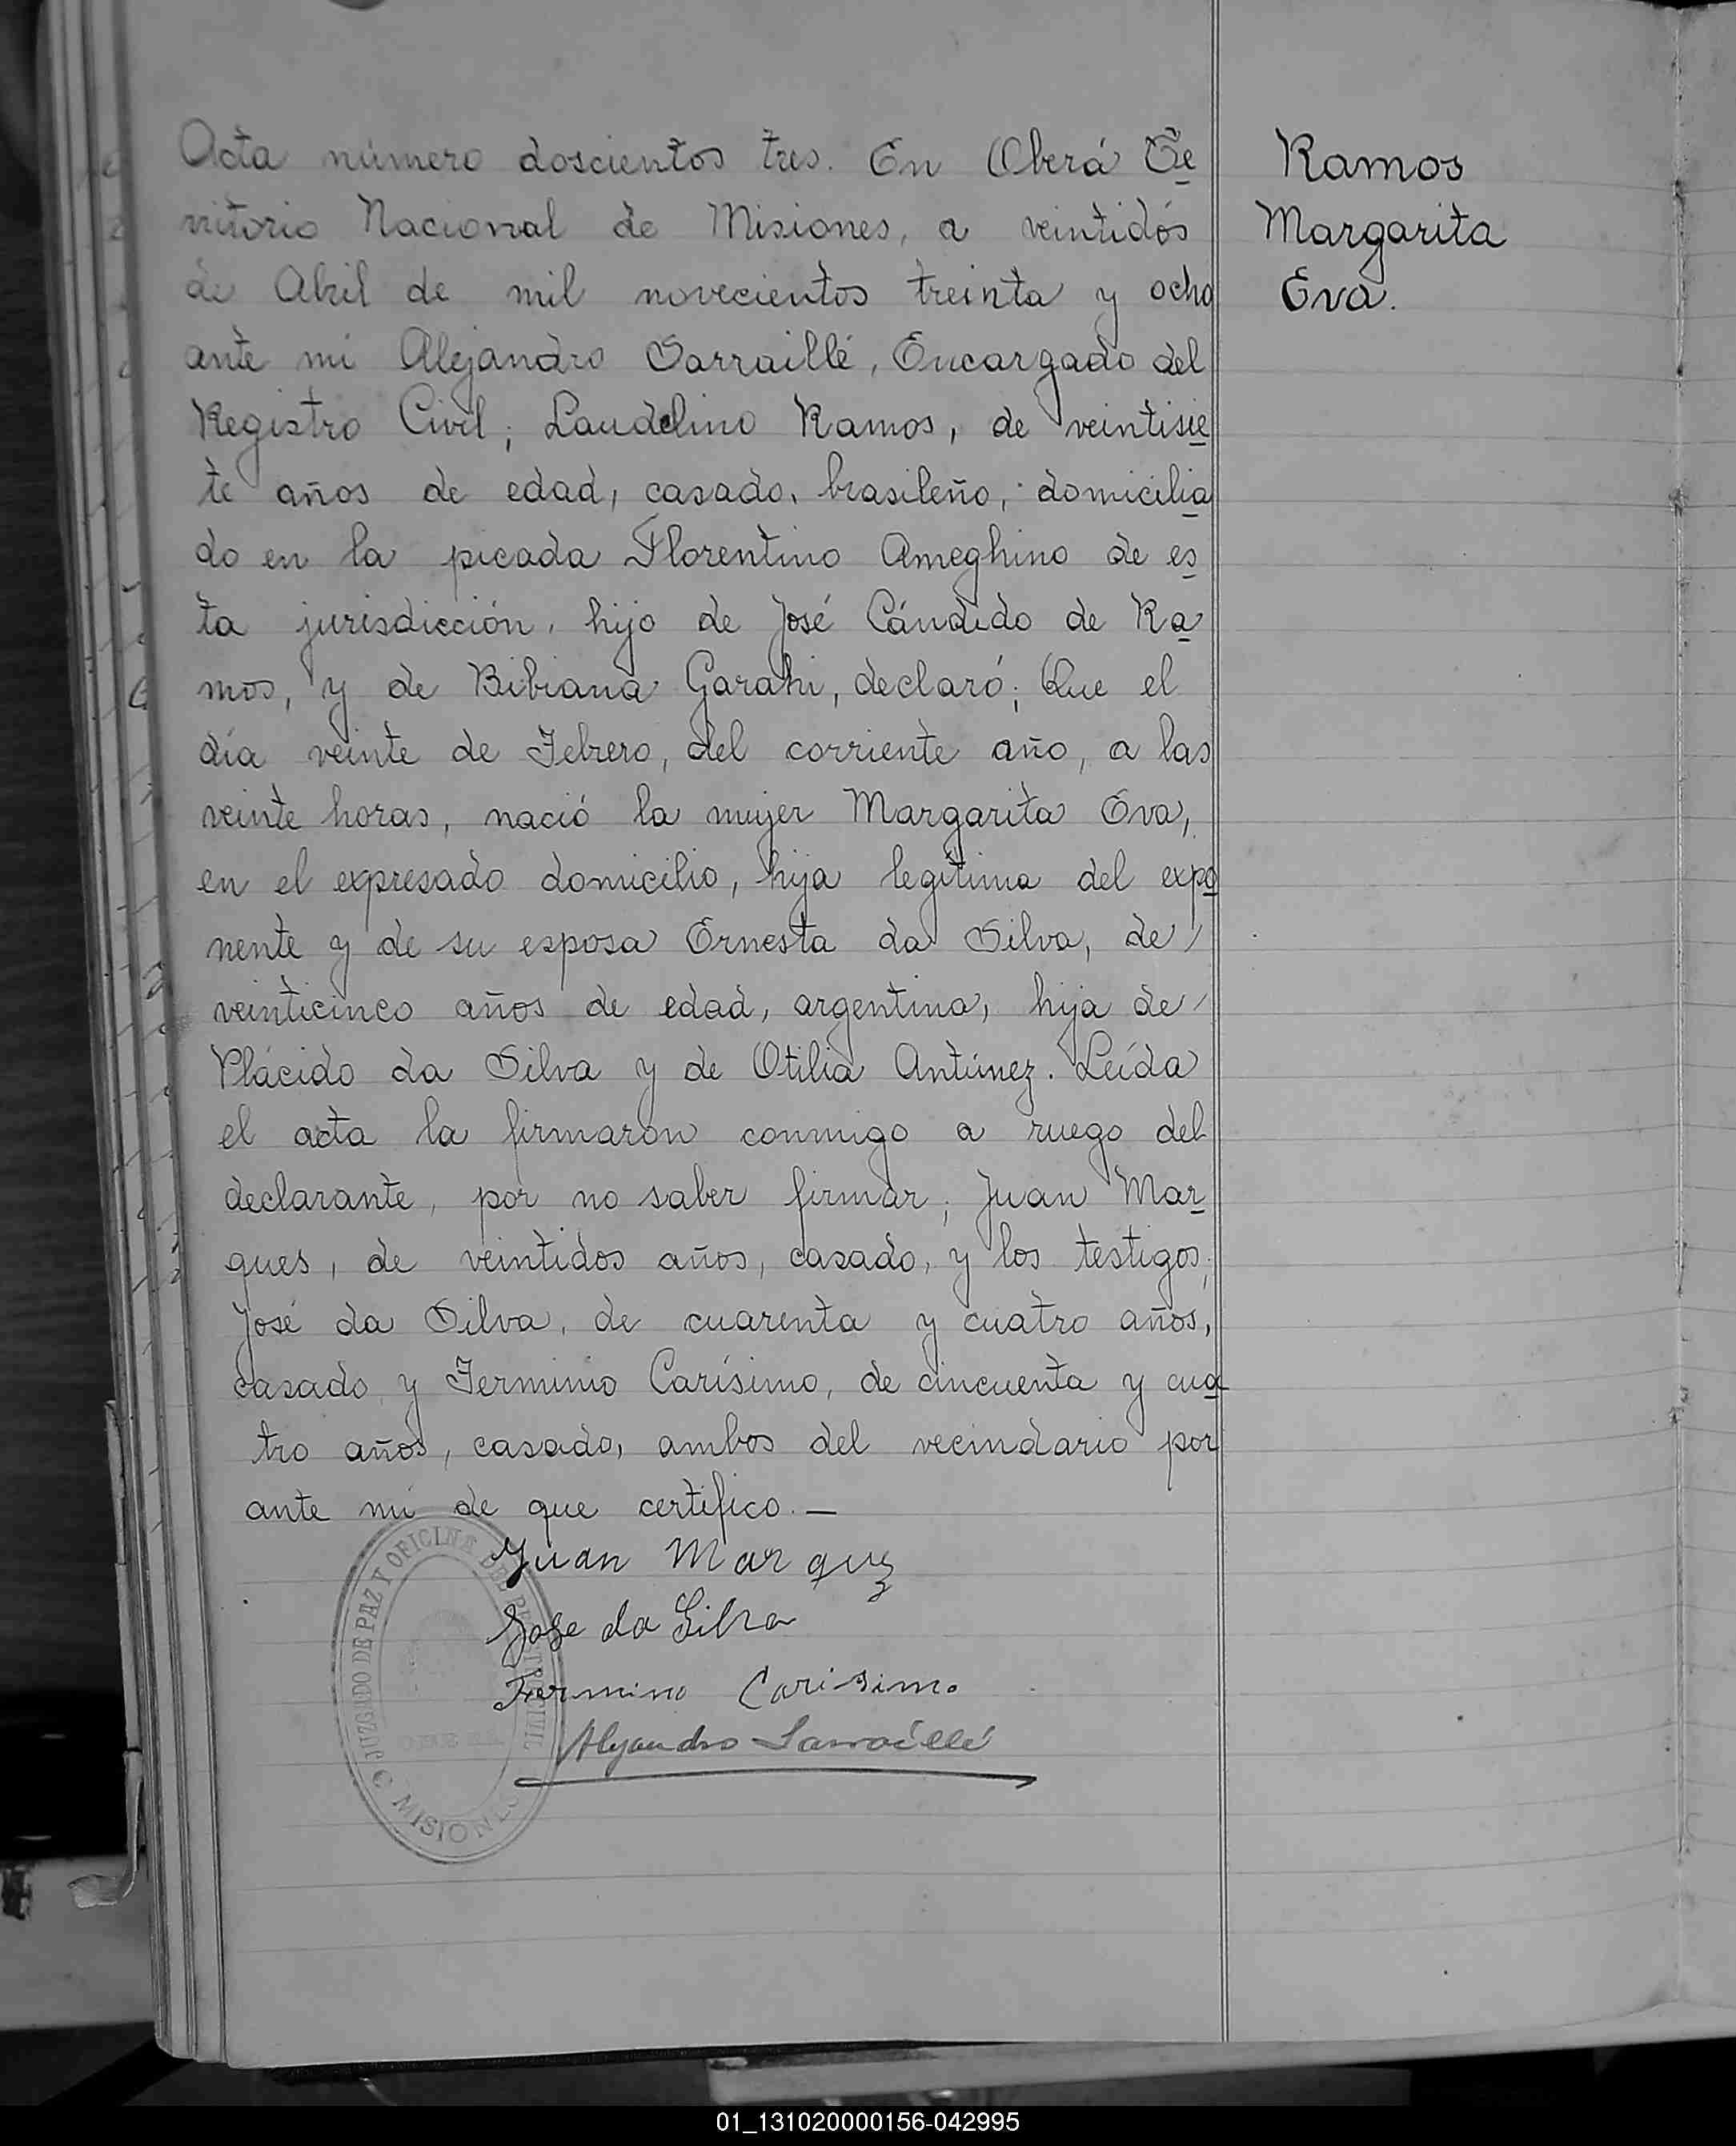 Acta número doscientos tres. En Oberá Te
rritorio Nacional de Misiones, a veintidós
de Abril de mil novecientos treinta y ocho
ante mi Alejandro Sarraillé, Encargado del
Registro Civil; Laudelino Ramos, de veintisie
te años de edad, casado, brasileño, domicilia
do en la picada Florentino Ameghino de es
ta jurisdicción, hijo de José Cándido de Ra
mos, y de Bibiana Garahi, declaró; Que el
día veinte de Febrero, del corriente año, a las
veinte horas, nació la mujer Margarita Eva,
en el expresado domicilio, hija legítima del expo
nente y de su esposa Ernesta da Silva, de
veinticinco años de edad, argentina, hija de
Plácido da Silva y de Otilia Antúnez. Leída
el acta la firmaron conmigo a ruego del
declarante, por no saber firmar; Juan Mar
ques, de veintidos años, casado, y los testigos;
José da Silva, de cuarenta y cuatro años,
casado y Fermino Carísimo, de cincuenta y cua
tro años, casado, ambos del vecindario por
ante mi de que certifico.—
Juan Marquz
Jose da Silva
Fermino Carisimo
Alejandro Sarraillé
JUZGADO DE PAZ Y OFICINA DEL REGISTRO CIVIL
MISIONES
Ramos
Margarita
Eva.
01_131020000156-042995